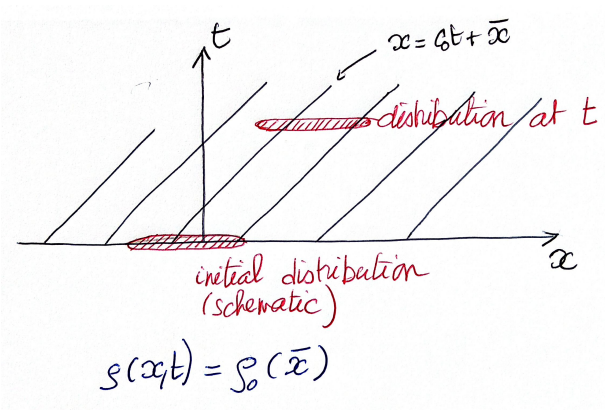 t
x = c₀t + x̄
distribution at t
x
initial distribution
(schematic)
ρ(x,t) = ρ₀(x̄)